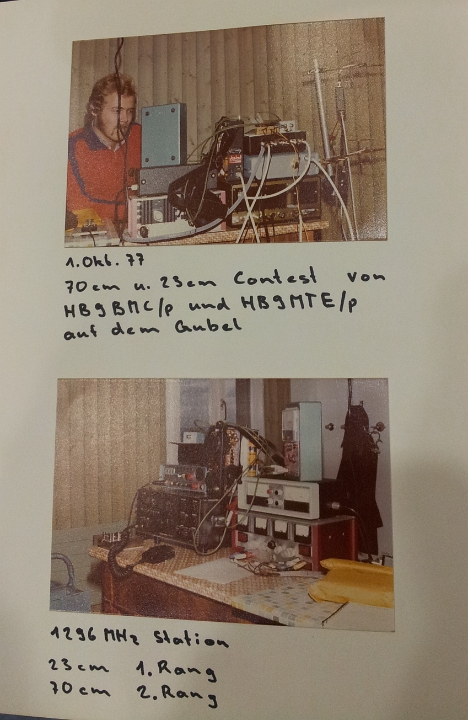 1. Okt. 77
70cm u. 23cm Contest von
HB9BMC/p und HB9MTE/p
auf dem Gubel
1296 MHz Station
23cm 1. Rang
70cm 2. Rang